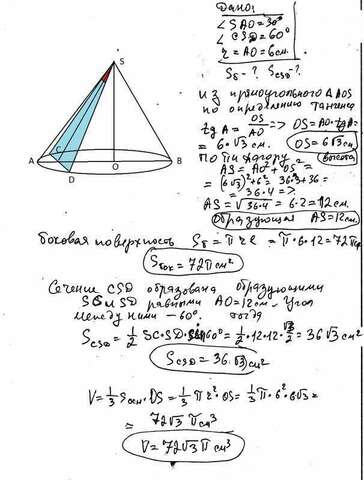 Дано:
∠SAO=30°
∠CSD=60°
r=AO=6см.
Sб-? S_CSD-?
Из прямоугольного ΔAOS
по определению тангенса
tg A = OS/AO => OS=AO·tg A=
= 6·√3 см. OS=6√3 см
По Пифагору высота
AS²=AO²+OS²=
=(6√3)²+6²=36·3+36=
=36·4 =>
AS=√36·4=6·2=12см.
Образующая AS=12см
S
A
C
D
O
B
боковая поверхность Sб=πrl=π·6·12=72π
Sбок=72π см²
Сечение CSD образована образующими
SC и SD равными AO=12см. Угол
между ними -60°. тогда
S_CSD=1/2 SC·SD·sin60°=1/2·12·12·√3/2=36√3 см²
S_CSD=36√3 см²
V=1/3 Sосн·OS=1/3 πr²·OS=1/3π·6²·6√3=
= 72√3 π см³
V=72√3 π см³